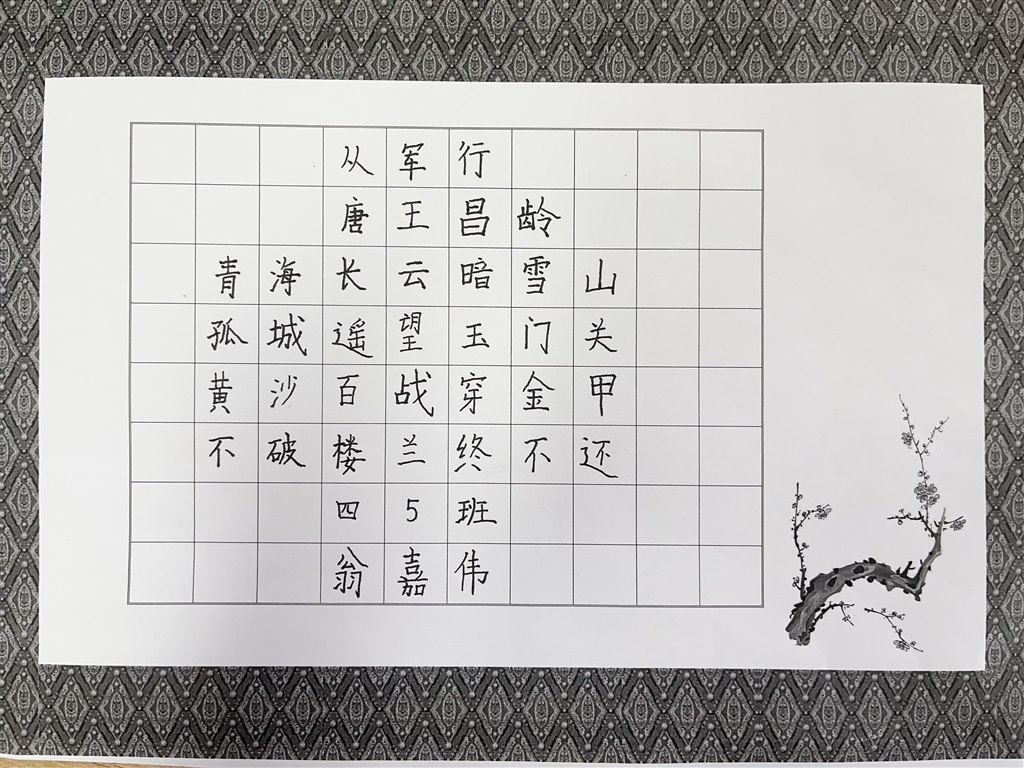 从军行
唐王昌龄
青海长云暗雪山
孤城遥望玉门关
黄沙百战穿金甲
不破楼兰终不还
四5班
翁嘉伟